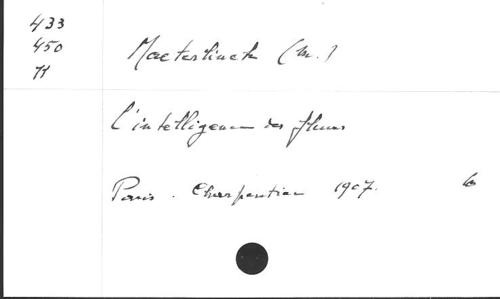 433
450
Maeterlinck (M.)
L'intelligence des fleurs
Paris. Charpentier 1907.